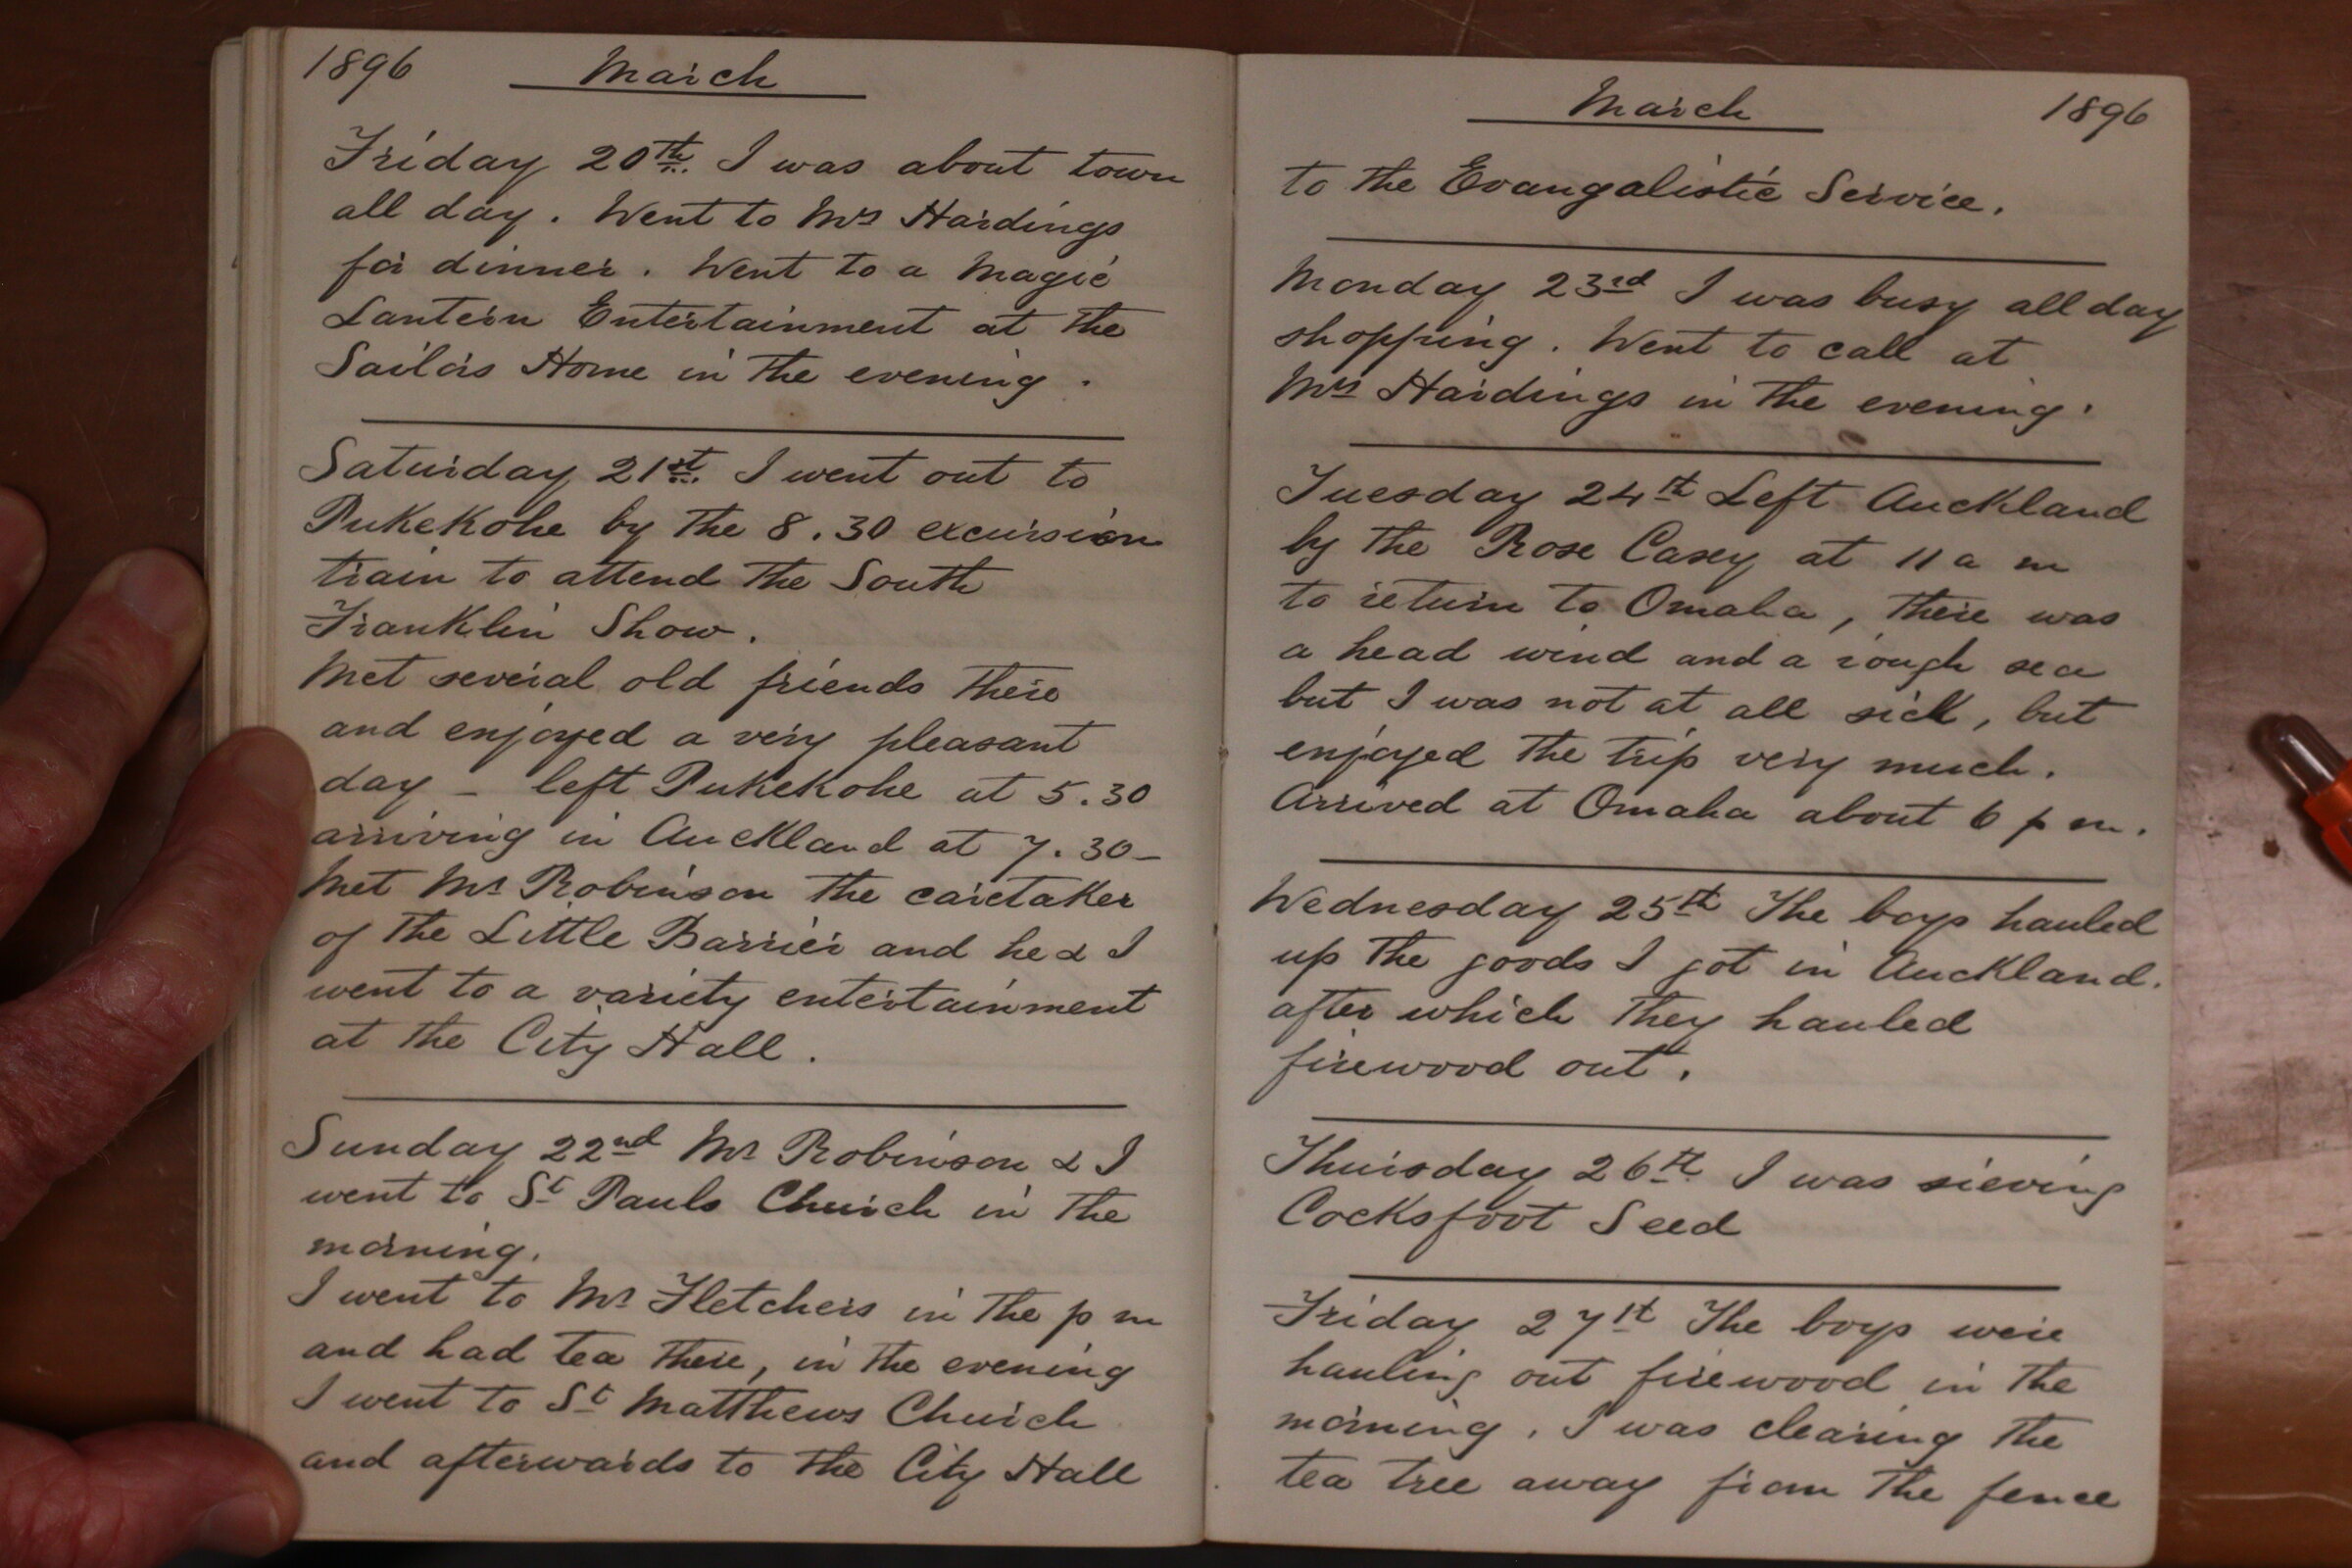 1896 March
Friday 20th. I was about town
all day. Went to Mrs Hardings
for dinner. Went to a Magic
Lantern Entertainment at the
Sailors Home in the evening.
Saturday 21st. I went out to
Pukekohe by the 8.30 excursion
train to attend the South
Franklin Show.
Met several old friends there
and enjoyed a very pleasant
day - left Pukekohe at 5.30
arriving in Auckland at 7.30 -
Met Mr Robinson the caretaker
of the Little Barrier and he & I
went to a variety entertainment
at the City Hall.
Sunday 22nd Mr Robinson & I
went to St Pauls Church in the
morning.
I went to Mr Fletchers in the p m
and had tea there, in the evening
I went to St Matthews Church
and afterwards to the City Hall
March 1896
to the Evangalistic Service.
Monday 23rd I was busy all day
shopping. Went to call at
Mrs Hardings in the evening.
Tuesday 24th Left Auckland
by the Rose Casey at 11 a m
to return to Omaha, there was
a head wind and a rough sea
but I was not at all sick, but
enjoyed the trip very much.
Arrived at Omaha about 6 p m.
Wednesday 25th The boys hauled
up the goods I got in Auckland.
after which they hauled
firewood out.
Thursday 26th. I was sieving
Cocksfoot Seed
Friday 27st The boys were
hauling out firewood in the
morning. I was clearing the
tea tree away from the fence